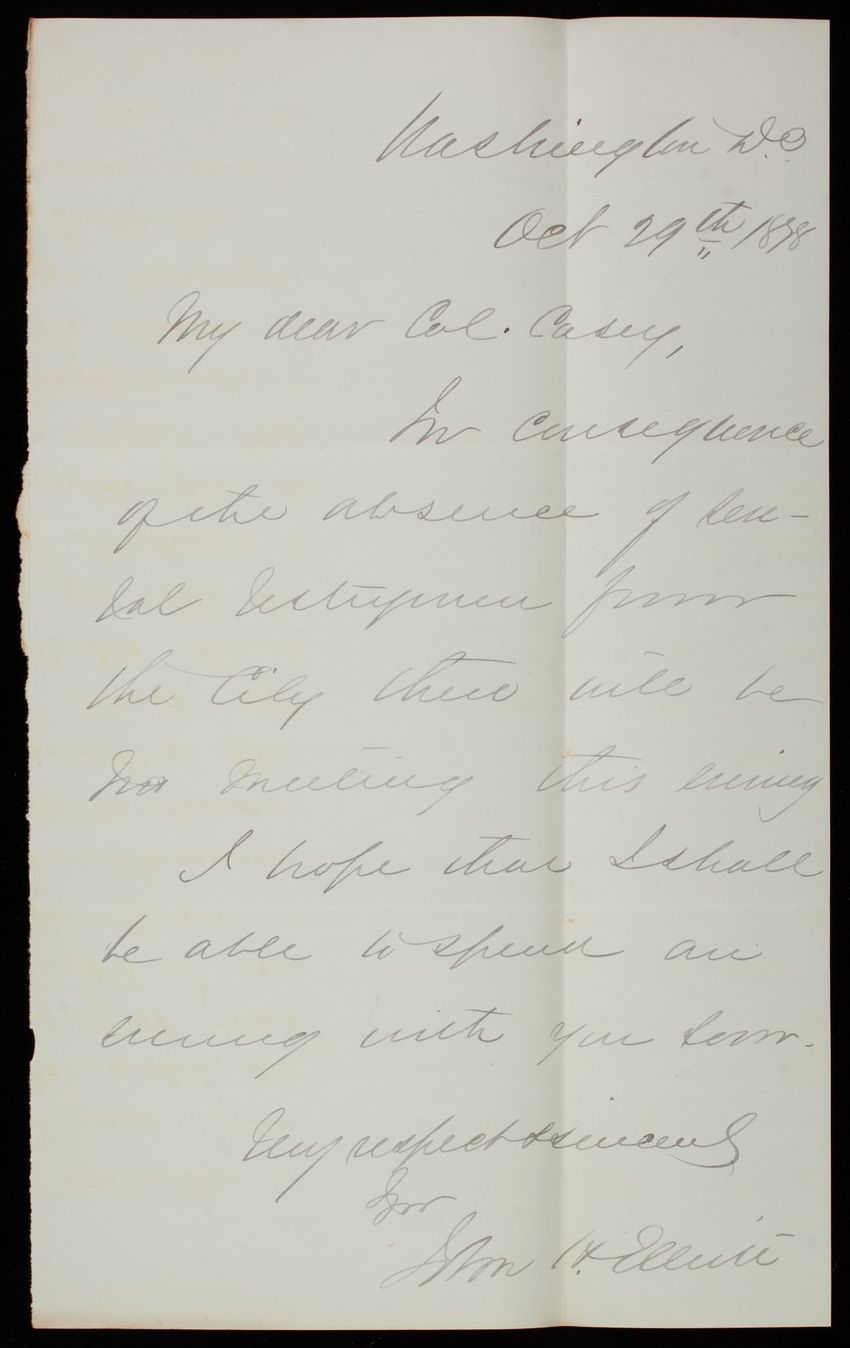 Washington D.C.
Oct 29th 1878
My dear Col. Casey,
In consequence
of the absence of seve-
ral Vestrymen from
the City there will be
no meeting this evening
I hope that I shall
be able to spend an
evening with you soon.
Very respect & sincerely
Yrs
John H. Elliott